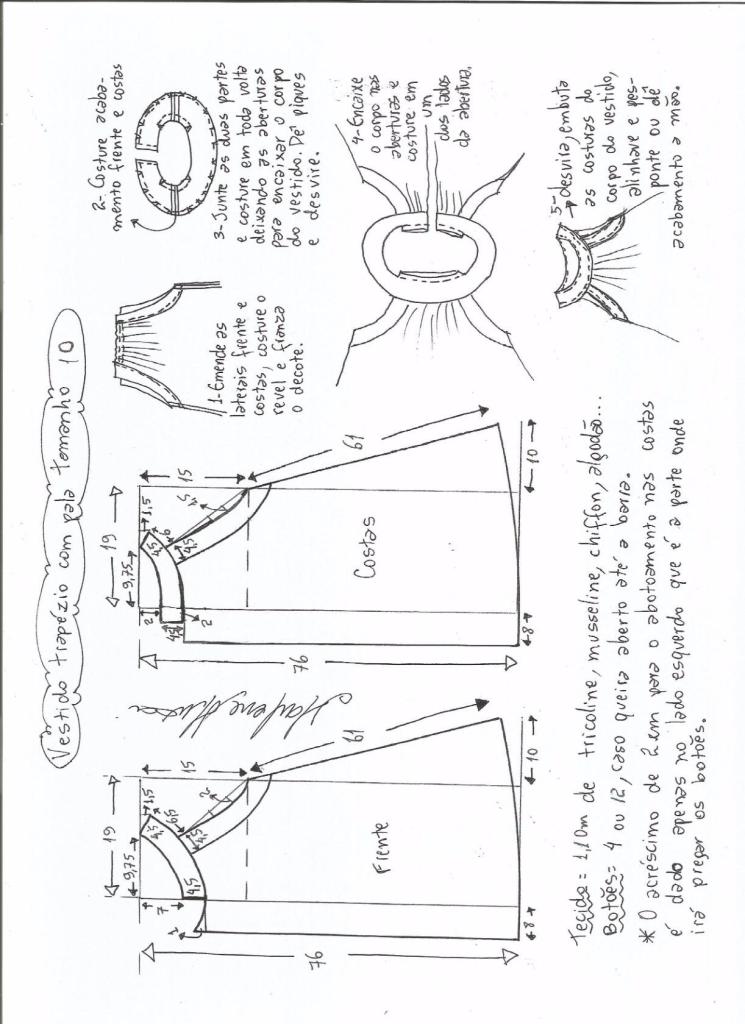 Vestido trapézio com pala tamanho 10
19
9,75
1,5
4,5
6,5
4,5
2
15
7
4,5
1
61
Frente
76
8
10
Marlene Mukai
19
9,75
1,5
4,5
6
4,5
4,5
15
2
4,5
2
61
Costas
76
8
10
1-Emende as
laterais frente e
costas, costure o
revel e franza
o decote.
2-Costure acaba-
mento frente e costas
3-Junte as duas partes
e costure em toda volta
deixando as aberturas
para encaixar o corpo
do vestido. Dê piques
e desvire.
4-Encaixe
o corpo nas
aberturas e
costure em
um
dos lados
da abertura.
5-desvira, embuta
as costuras do
corpo do vestido,
alinhave e pes-
ponte ou dê
acabamento a mão.
Tecido= 1,10m de tricoline, musseline, chiffon, algodão...
Botões= 4 ou 12, caso queira aberto até a barra.
* O acréscimo de 2cm para o abotoamento nas costas
é dado apenas no lado esquerdo que é a parte onde
irá pregar os botões.